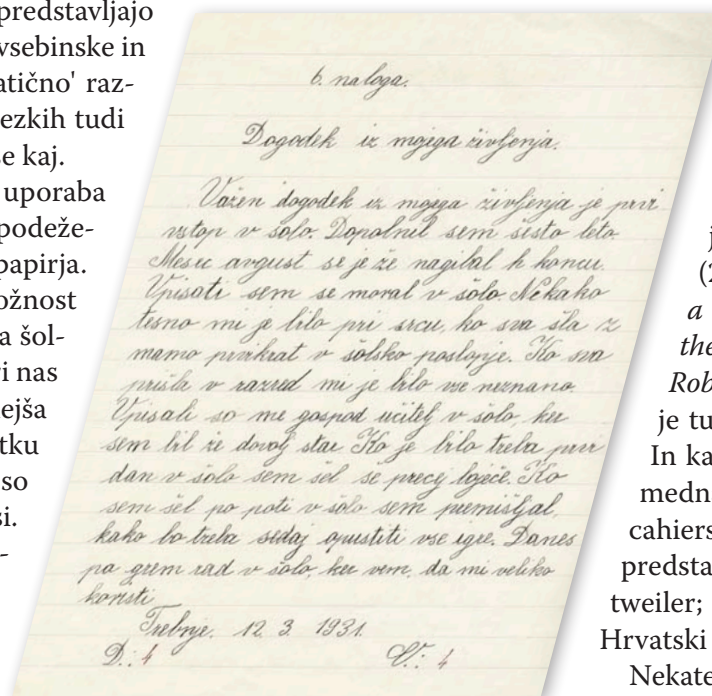 predstavljajo
vsebinske in
atično' raz-
ezkih tudi
še kaj.
uporaba
podeže-
papirja.
ožnost
a šol-
ri nas
ejša
tku
so
si.
-
6. naloga.
Dogodek iz mojega življenja.
Važen dogodek iz mojega življenja je prvi
vstop v šolo. Dopolnil sem šesto leto.
Mesec avgust se je že nagibal h koncu.
Vpisati sem se moral v šolo. Nekako
tesno mi je bilo pri srcu, ko sva šla z
mamo prvikrat v šolsko poslopje. Ko sva
prišla v razred mi je bilo vse neznano.
Vpisali so me gospod učitelj v šolo, ker
sem bil že dovolj star. Ko je bilo treba prvi
dan v šolo sem šel še precej lajče. Ko
sem šel po poti v šolo sem premišljal,
kako bo treba sedaj opustiti vse igre. Danes
pa grem rad v šolo, ker vem, da mi veliko
koristi.
Trebnje. 12. 3. 1931.
D.: 4 V.: 4
j
(2
a
the
Rob
je tu
In ka
medn
cahiers
predsta
tweiler;
Hrvatski
Nekate